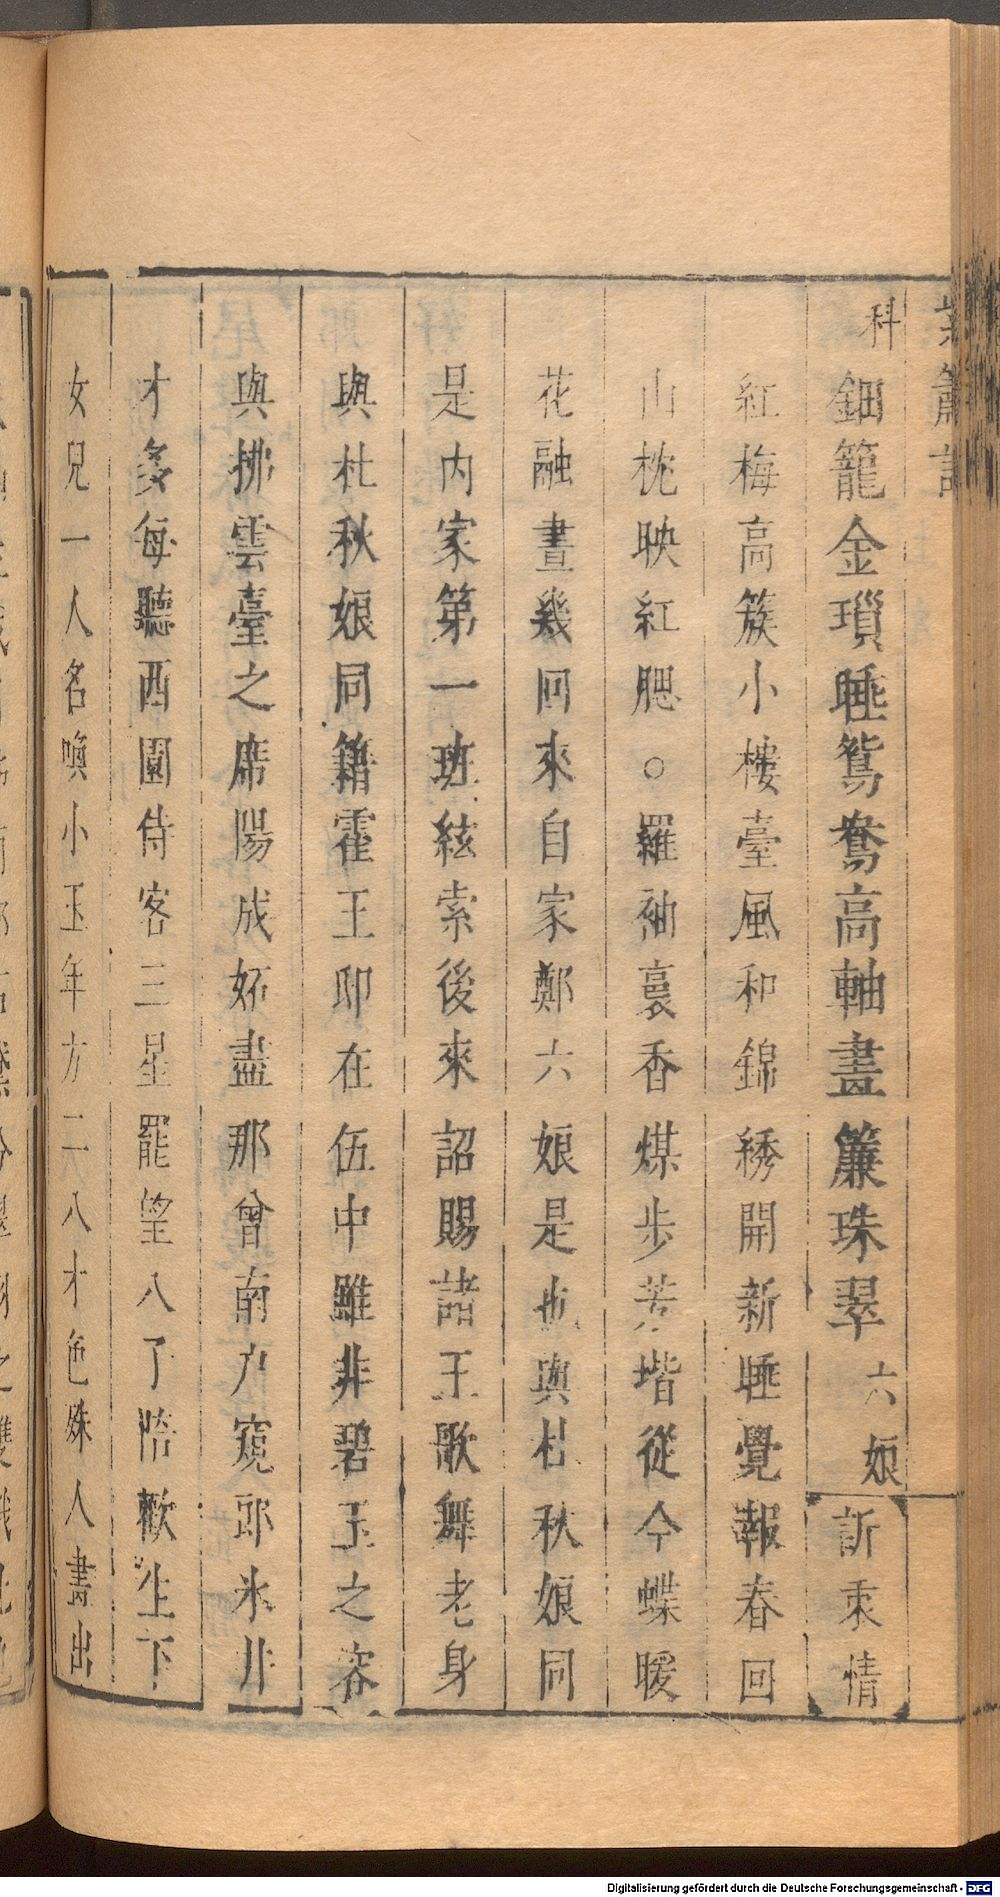 紫簫記
科 鈿籠金瑣睡鴛鴦高軸畫簾珠翠 六娘 訢衷情
紅梅高簇小樓臺風和錦綉開新睡覺報春回
山枕映紅腮○羅袖裛香煤步芳堦從今蝶暖
花融晝幾回來自家鄭六娘是也與杜秋娘同
是内家第一班絃索後來詔賜諸王歌舞老身
與杜秋娘同籍霍王邸在伍中雖非碧玉之容
與拂雲臺之席陽成妬盡那曾南户窺郎氷井
才多每聽西園侍客三星罷望八了陪歡生下
女兒一人名喚小玉年方二八才色姝人書出
Digitalisierung gefördert durch die Deutsche Forschungsgemeinschaft - DFG